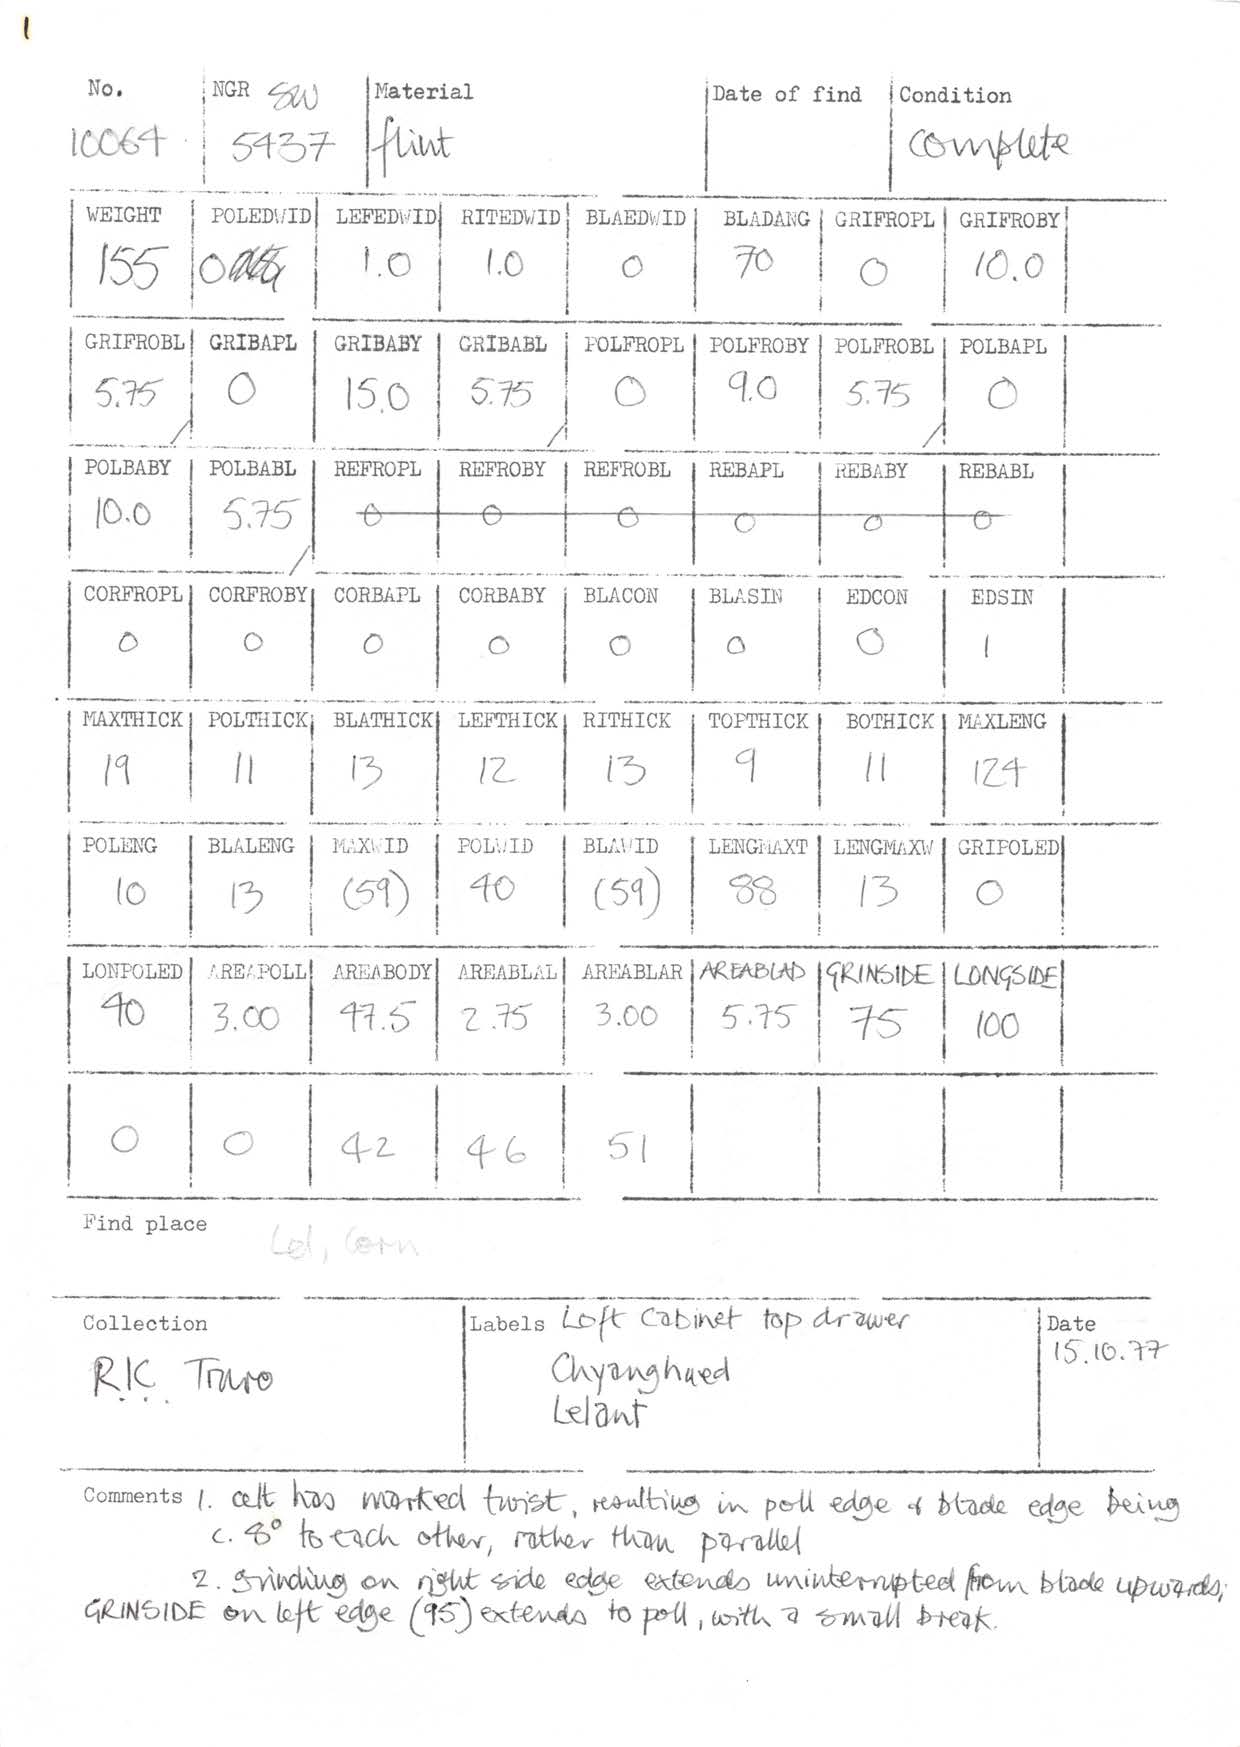 1
No. NGR SW Material Date of find Condition
10064 5437 flint complete
WEIGHT POLEDWID LEFEDWID RITEDWID BLAEDWID BLADANG GRIFROPL GRIFROBY
155 0 1.0 1.0 0 70 0 10.0
GRIFROBL GRIBAPL GRIBABY GRIBABL POLFROPL POLFROBY POLFROBL POLBAPL
5.75 0 15.0 5.75 0 9.0 5.75 0
POLBABY POLBABL REFROPL REFROBY REFROBL REBAPL REBABY REBABL
10.0 5.75 0 0 0 0 0 0
CORFROPL CORFROBY CORBAPL CORBABY BLACON BLASIN EDCON EDSIN
0 0 0 0 0 0 0 1
MAXTHICK POLTHICK BLATHICK LEFTHICK RITHICK TOPTHICK BOTHICK MAXLENG
19 11 13 12 13 9 11 124
POLENG BLALENG MAXWID POLWID BLAWID LENGMAXT LENGMAXW GRIPOLED
10 13 (59) 40 (59) 88 13 0
LONPOLED AREAPOLL AREABODY AREABLAL AREABLAR AREABLAD GRINSIDE LONGSIDE
40 3.00 47.5 2.75 3.00 5.75 75 100
0 0 42 46 51
Find place
Lel, Corn
Collection Labels Loft Cabinet top drawer Date
R.I.C. Truro Chyanghued 15.10.77
Lelant
Comments 1. celt has marked twist, resulting in poll edge & blade edge being
c. 8° to each other, rather than parallel
2. grinding on right side edge extends uninterrupted from blade upwards;
GRINSIDE on left edge (95) extends to poll, with a small break.